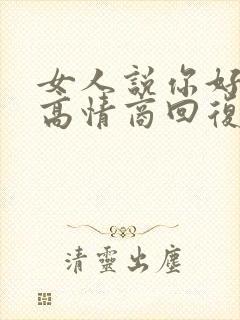 女人説你好
高情商回復
清靈出塵